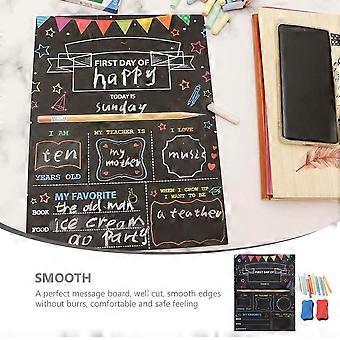 FIRST DAY OF
happy
TODAY IS
sunday
I AM
MY TEACHER IS
I LOVE
ten
my
mother
music
YEARS OLD
MY FAVORITE
WHEN I GROW UP
I WANT TO BE
BOOK
the old man
a teacher
FOOD
ice cream
go party
SMOOTH
A perfect message board, well cut, smooth edges
without burrs, comfortable and safe feeling
FIRST DAY OF